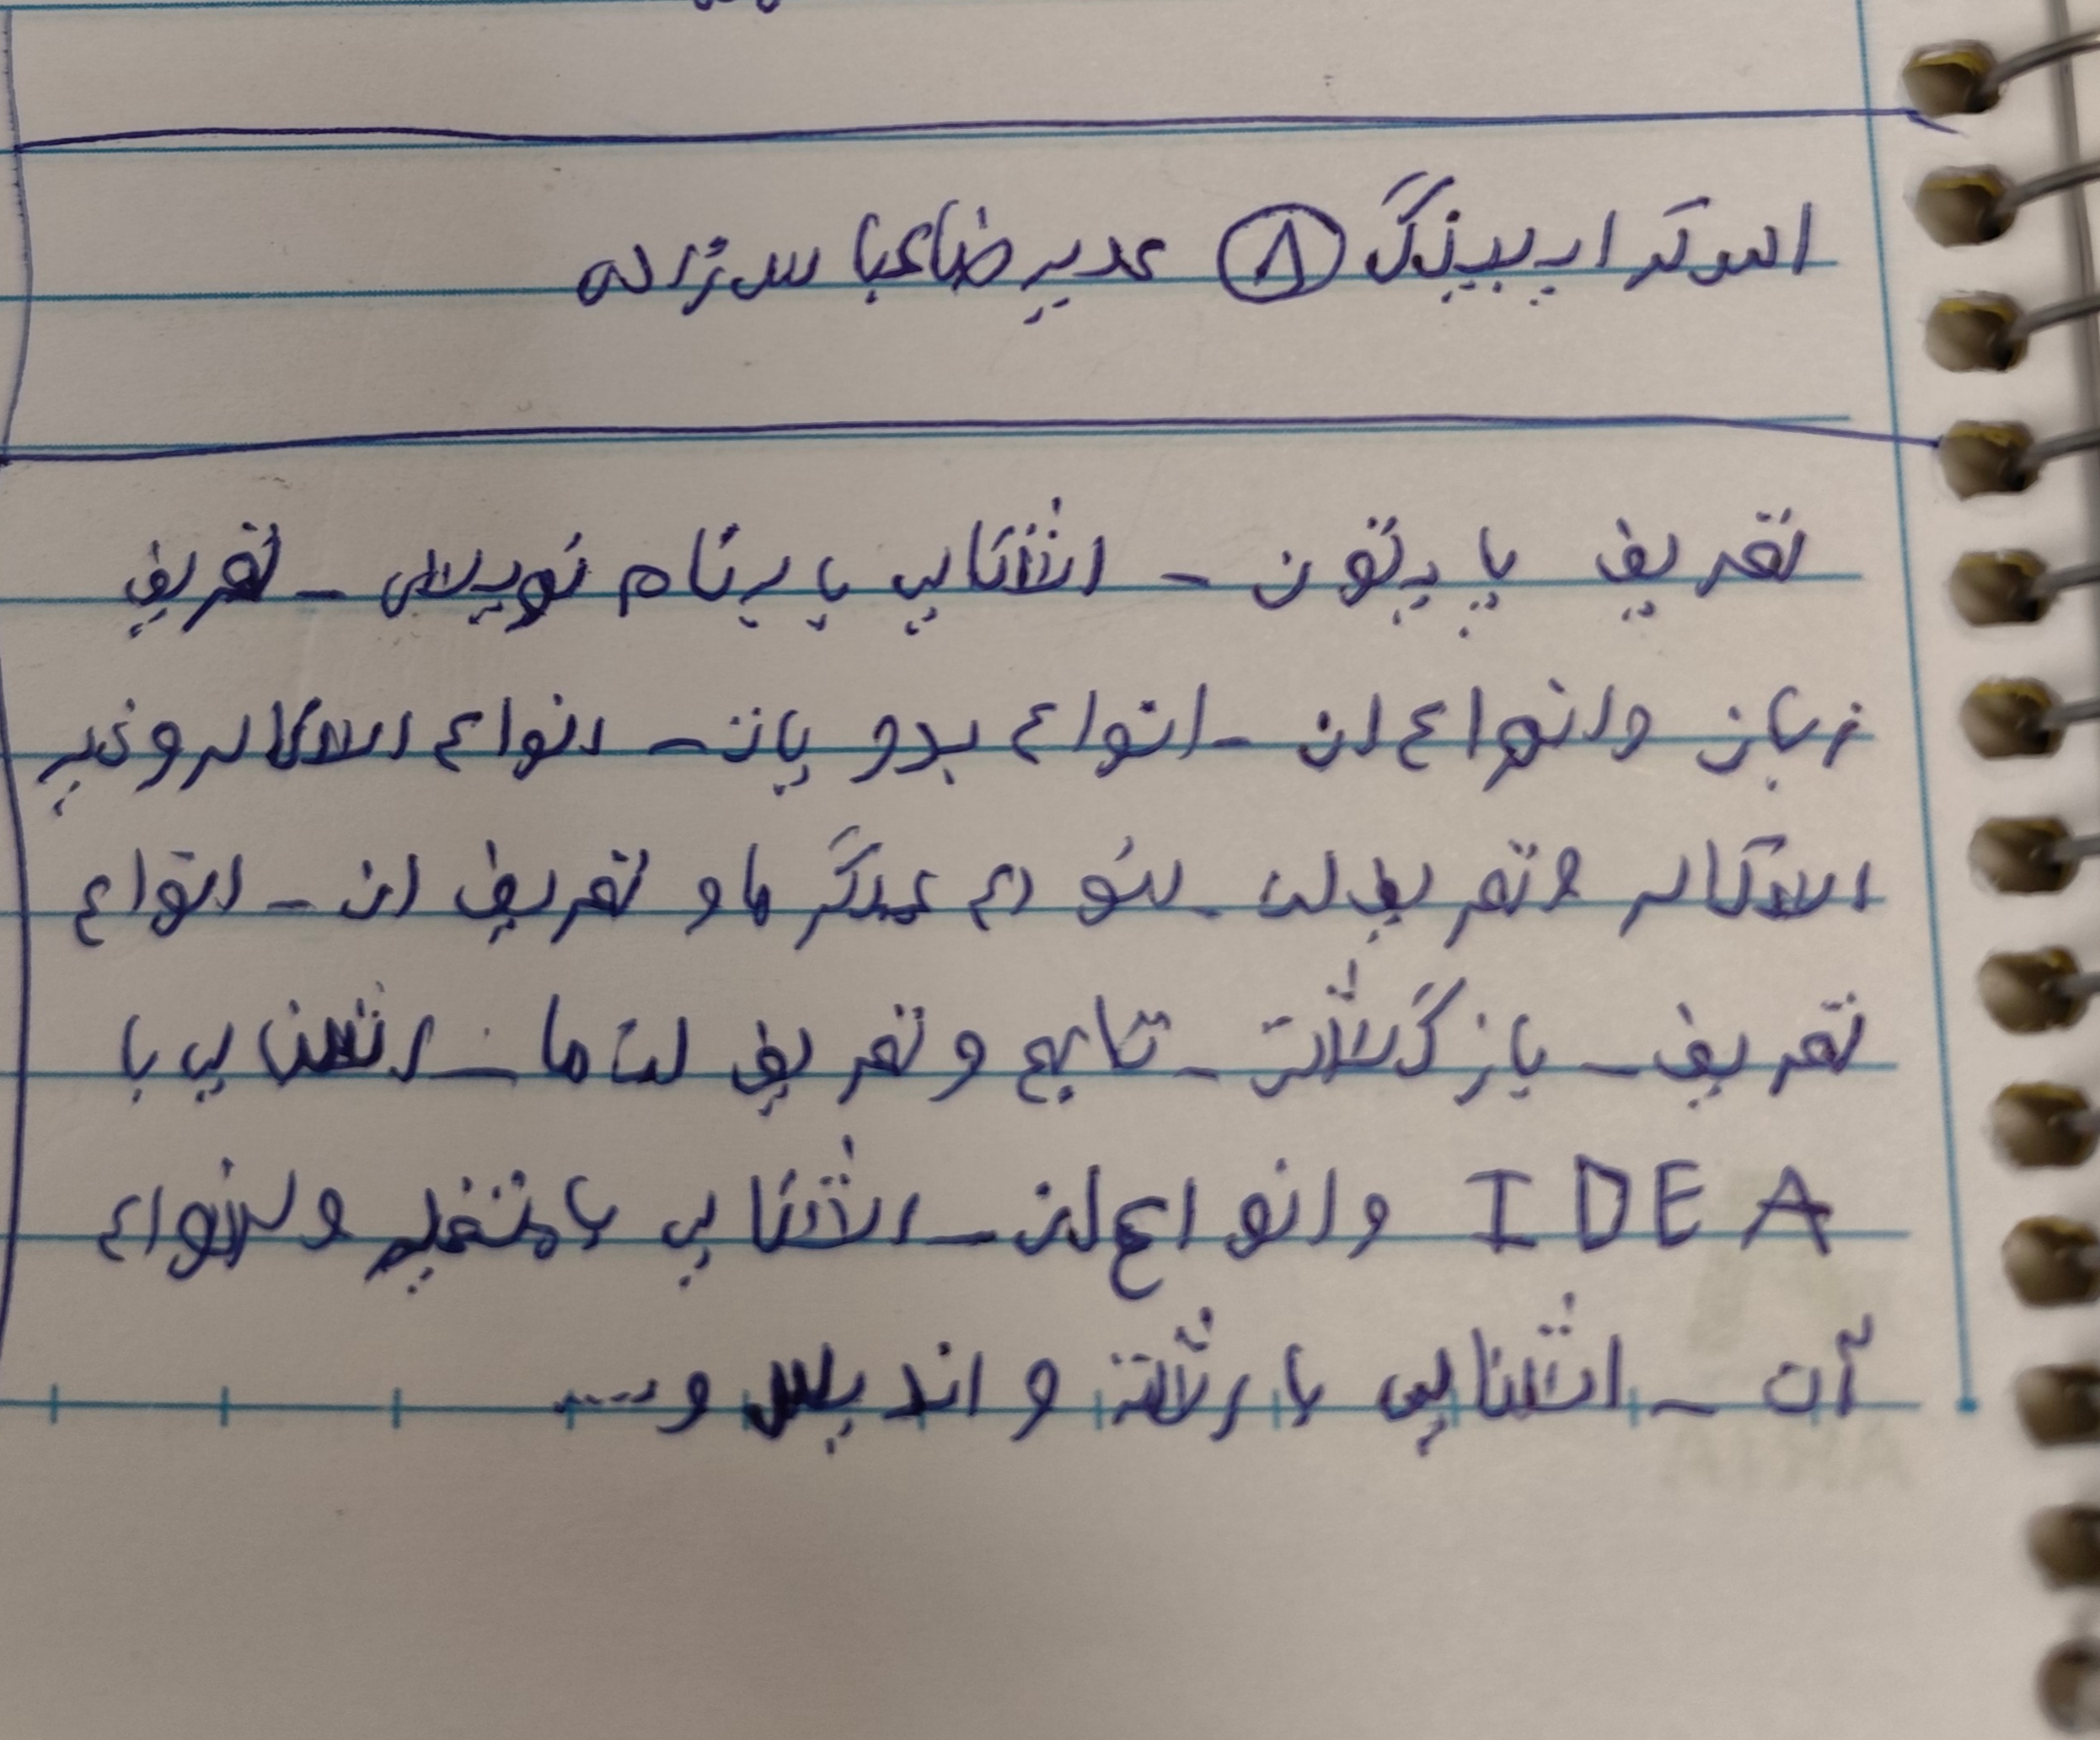 اسکرا پیینگ ۸ عدیر ضاعبا س زاده
تعریف پایتون - اشنایی با برنام نویسی - تعریف
زبان وانواع ان - انواع بدو یان - انواع اسکالر و غیر
اسکالر و تعریف ان - سودم عملگر ها و تعریف ان - انواع
تعریف - بازگشت - تابع و تعریف ان ها - اشنایی با
IDEA وانواع ان - اشنایی با متغیر و انواع
آن - اشنایی با رشته و اندیس و ...